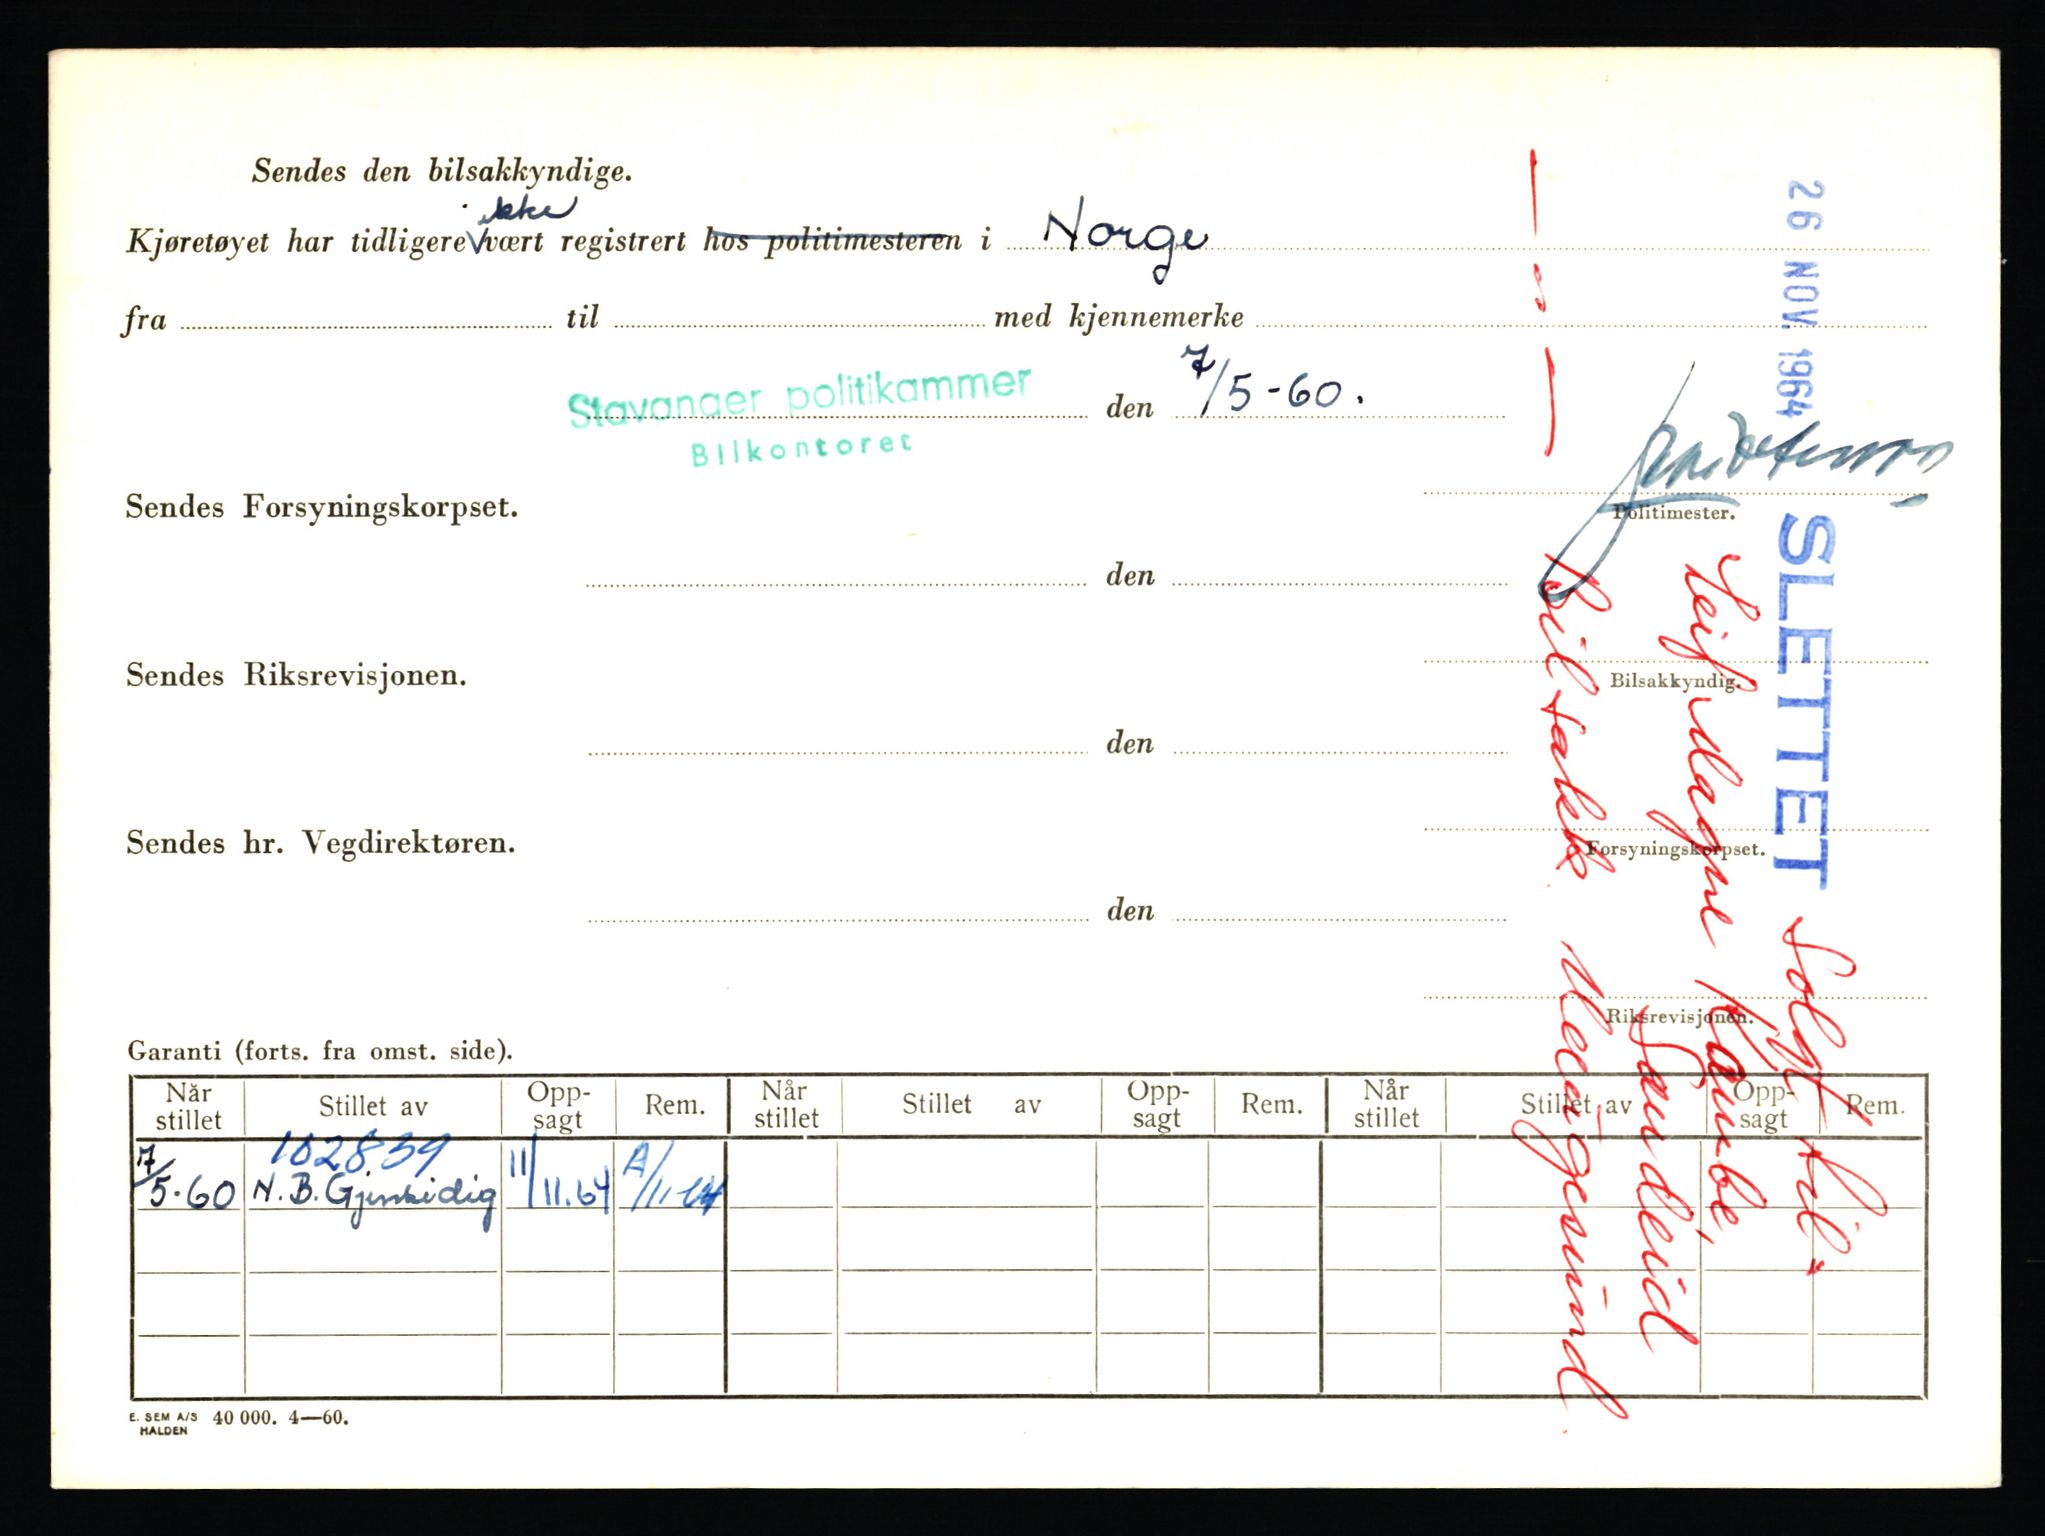 Sendes den bilsakkyndige.
ikke
Kjøretøyet har tidligere vært registrert hos politimesteren i Norge
fra til med kjennemerke
Stavanger politikammer den 7/5-60.
Bilkontoret
Sendes Forsyningskorpset.
Politimester.
den
Sendes Riksrevisjonen.
Bilsakkyndig.
den
Sendes hr. Vegdirektøren.
Forsyningskorpset.
den
Riksrevisjonen.
Garanti (forts. fra omst. side).
Når stillet Stillet av Opp-sagt Rem. Når stillet Stillet av Opp-sagt Rem. Når stillet Stillet av Opp-sagt Rem.
102839
7/5-60 N.B. Gjensidig 11/11.64 A/11-64
E. SEM A/S HALDEN 40 000. 4—60.
26 NOV. 1964 SLETTET
Solgt til:
Leif Magne Kambe,
Sandeid
Bilsakk Haugesund